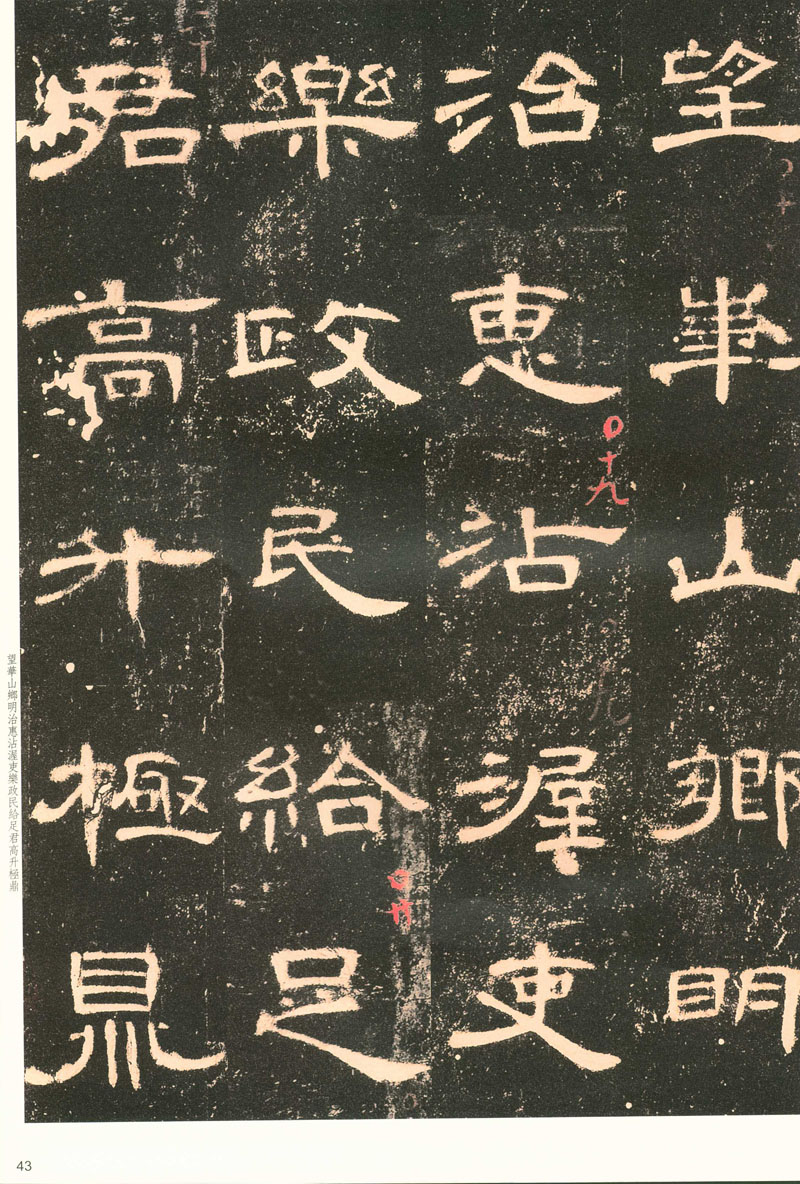 望華山鄉明
治惠沾渥吏
樂政民給足
君高升極鼎
十九
望華山鄉明治惠沾渥吏樂政民給足君高升極鼎
43